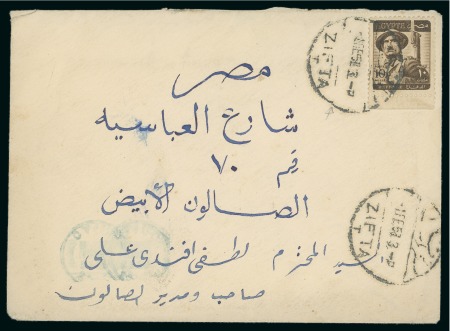 EGYPTE
ZIFTA
ZIFTA
مصر
شارع العباسيه
رقم ٧٠
الصالون الأبيض
سيد المحترم لطفى افندى على
صاحب ومدير الصالون